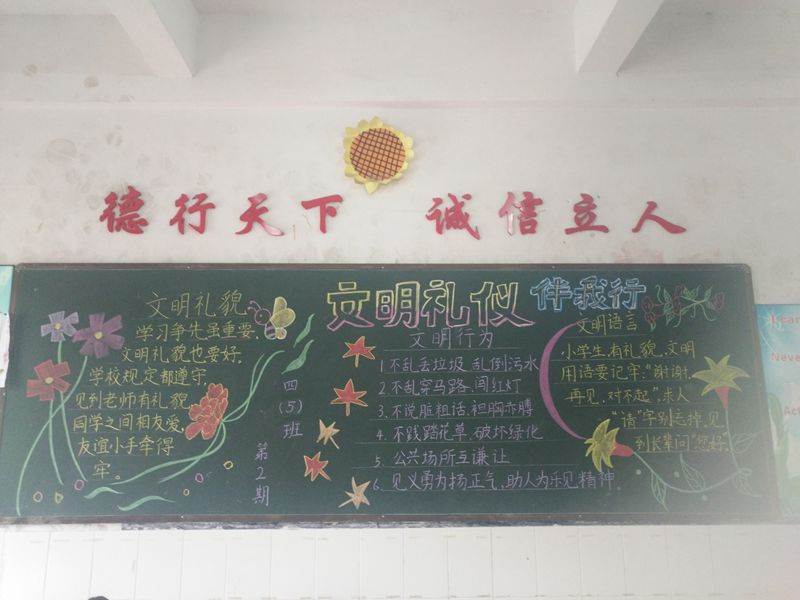 德行天下 诚信立人
文明礼仪 伴我行
文明礼貌
学习争先虽重要,
文明礼貌也要好。
学校规定都遵守,
见到老师有礼貌
同学之间相友爱,
友谊小手牵得
牢。
四(5)班
第2期
文明行为
1.不乱丢垃圾,乱倒污水
2.不乱穿马路、闯红灯
3.不说脏粗话,袒胸赤膊
4.不践踏花草、破坏绿化
5.公共场所互谦让
6.见义勇为扬正气,助人为乐见精神。
文明语言
小学生,有礼貌,文明
用语要记牢:"谢谢,
再见,对不起",求人
"请"字别忘掉,见
到长辈问"您好".
I can
Never
Act